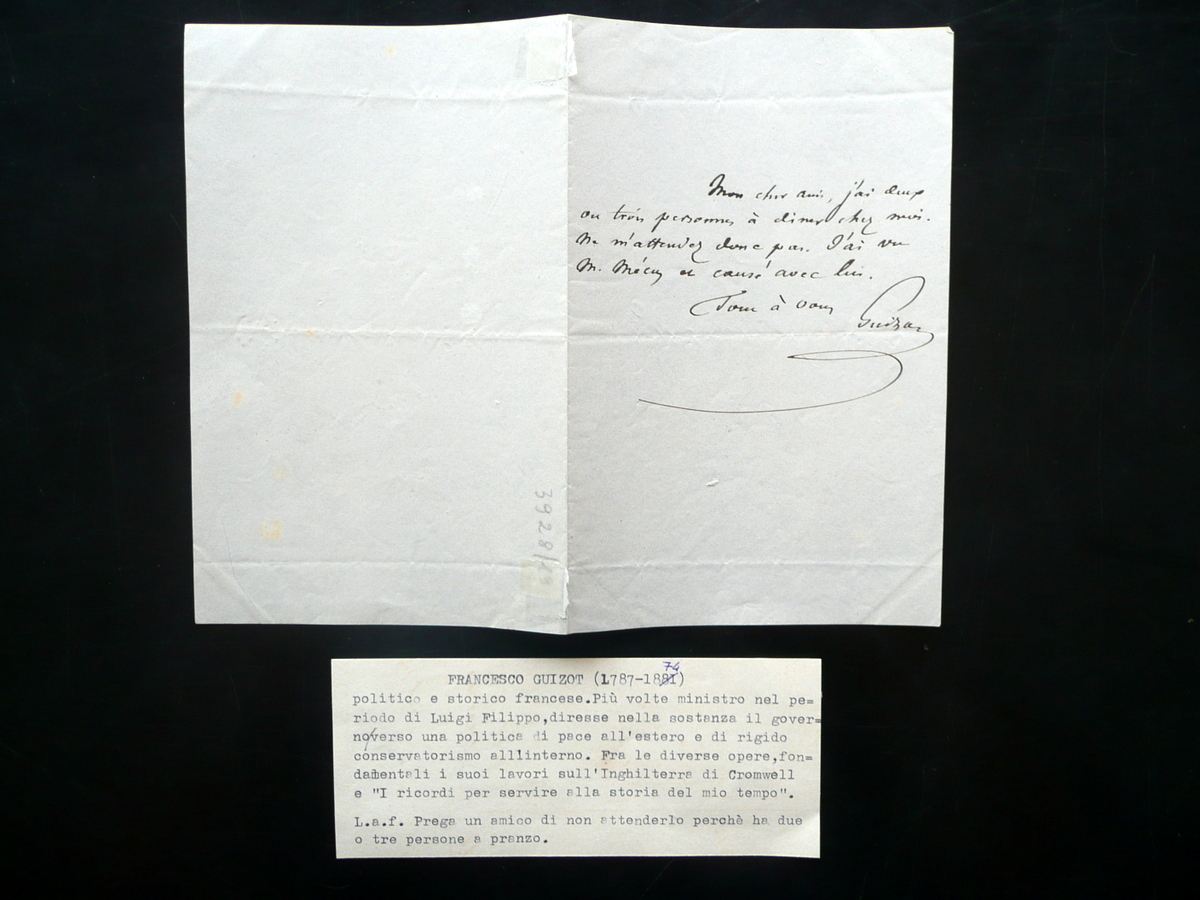 Mon cher ami, j'ai deux
ou trois personnes à diner chez moi.
Ne m'attendez donc pas. J'ai vu
M. et causé avec lui.
Tout à vous Guizot
3928/
FRANCESCO GUIZOT (1787-1881) 74
politico e storico francese.Più volte ministro nel pe=
riodo di Luigi Filippo,diresse nella sostanza il gover=
no/verso una politica di pace all'estero e di rigido
conservatorismo alllinterno. Fra le diverse opere,fon=
damentali i suoi lavori sull'Inghilterra di Cromwell
e "I ricordi per servire alla storia del mio tempo".
L.a.f. Prega un amico di non attenderlo perchè ha due
o tre persone a pranzo.